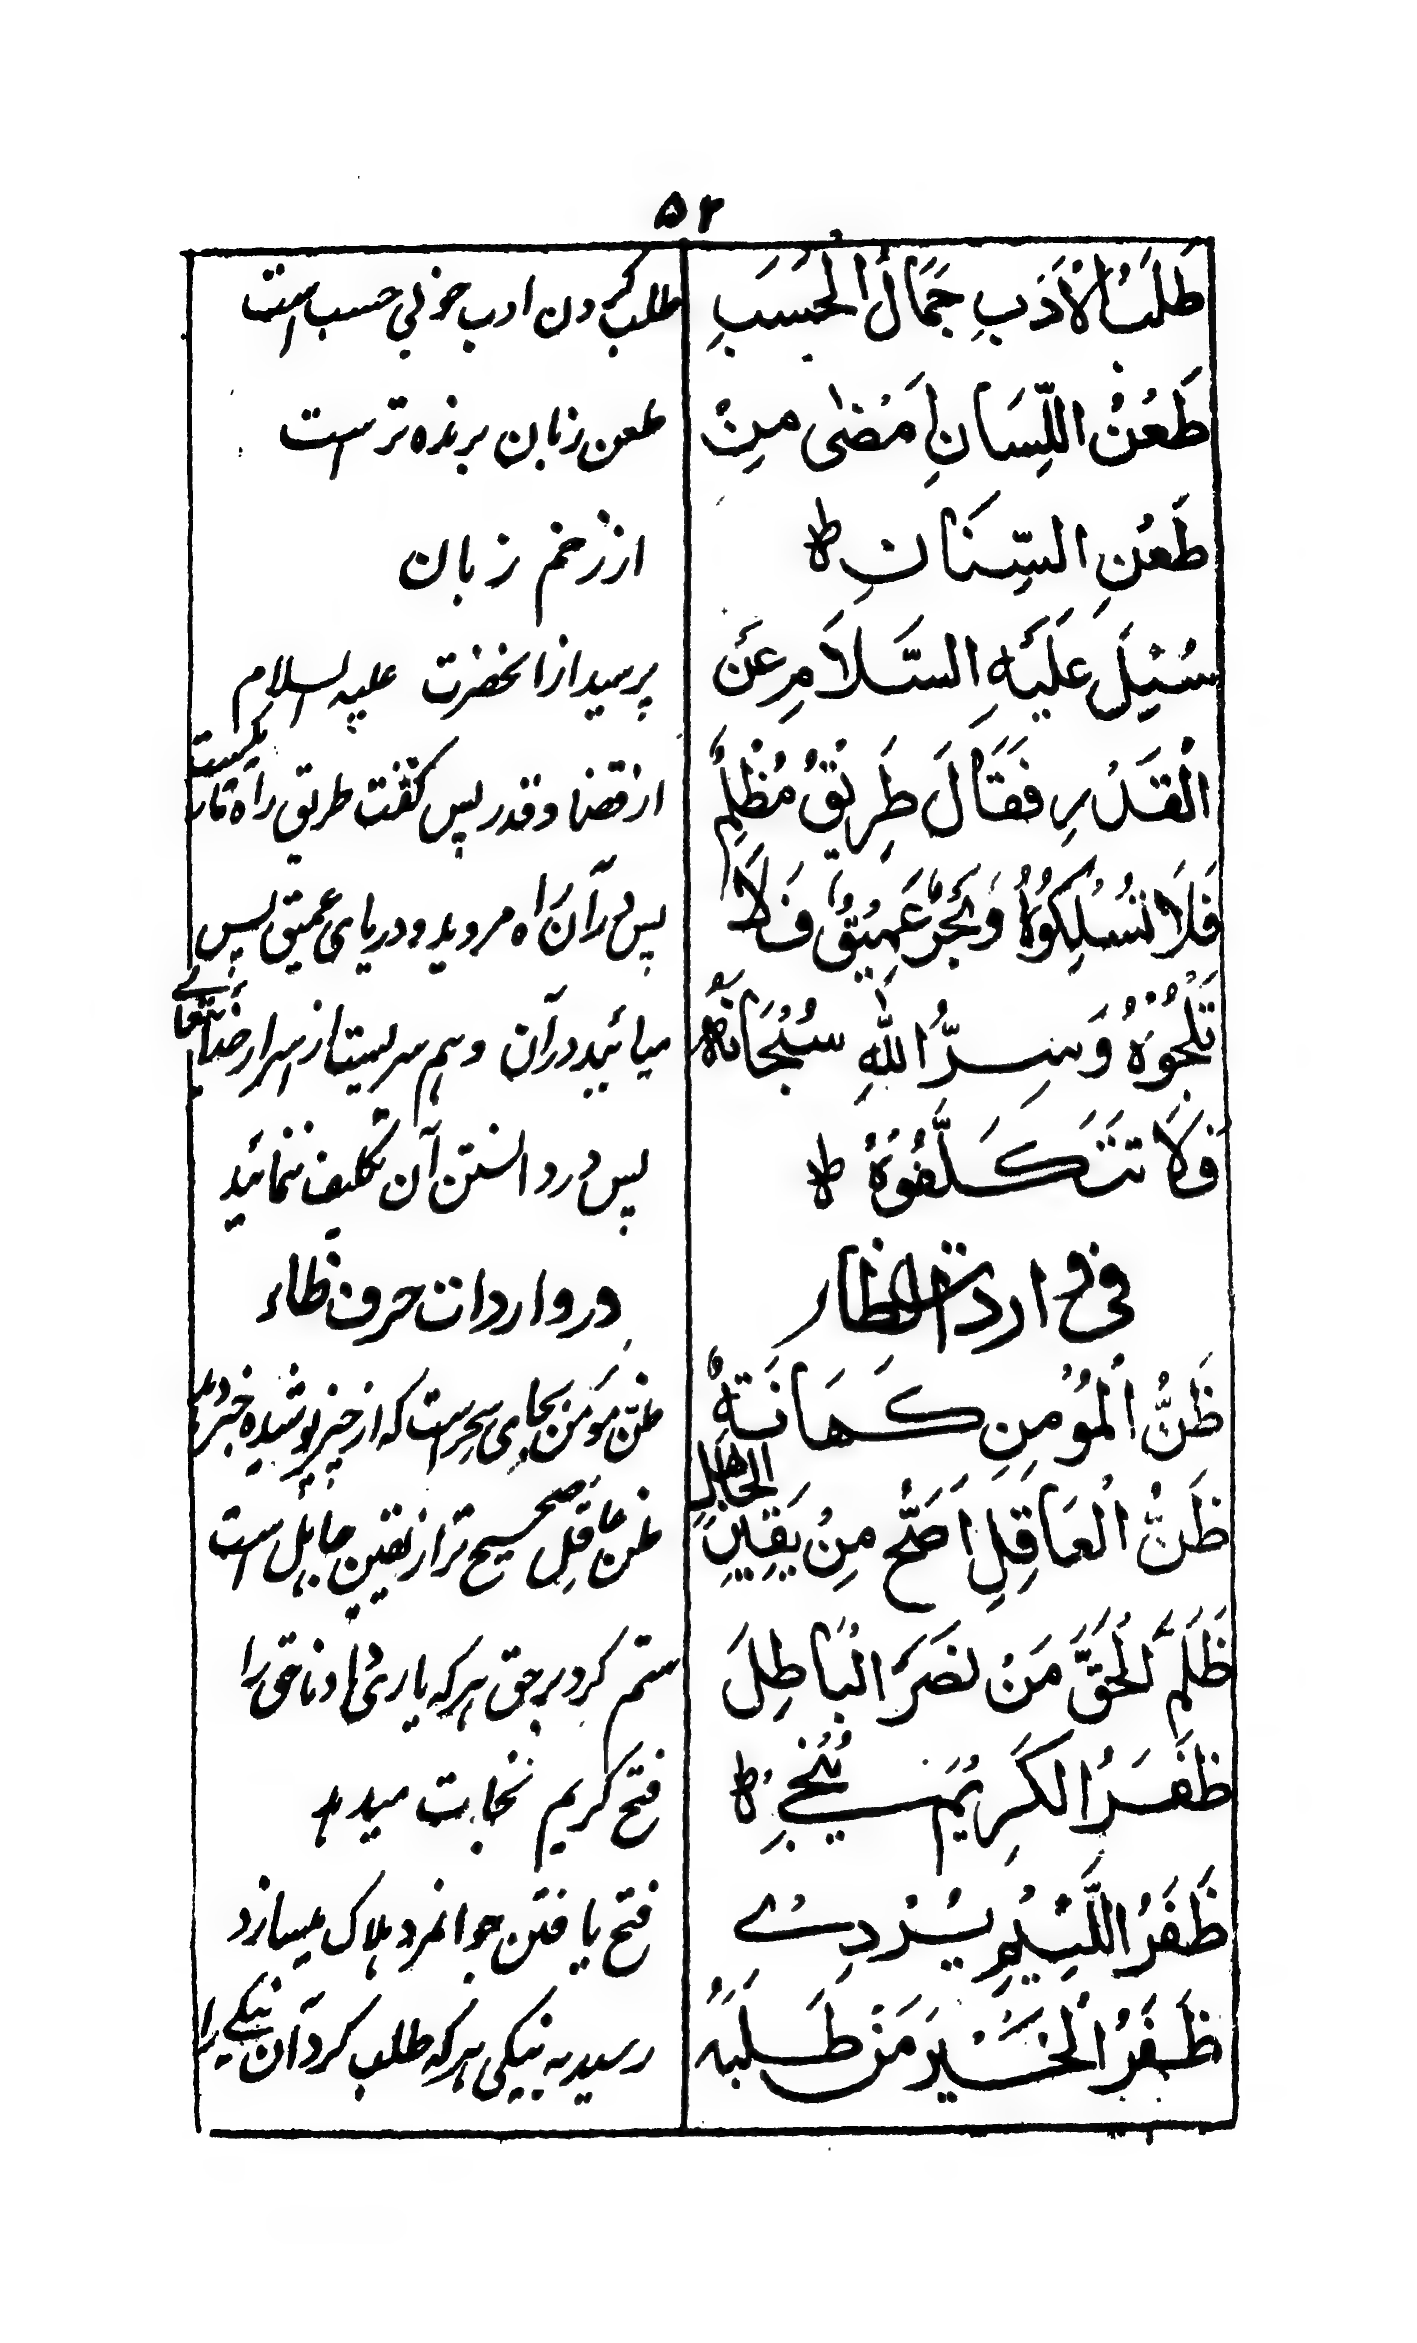 ۵۲
طَلَبُ الْاَدَبِ جَمَالُ الْحَسَبِ
طلب کردن ادب خوبی حسب است
طَعْنُ اللِّسَانِ اَمْضٰی مِنْ
طعن زبان برنده تر است
طَعْنِ السِّنَانِ ط
از زخم زبان
سُئِلَ عَلَیْهِ السَّلَامِ عَنْ
پرسید از آنحضرت علیه السلام
الْقَدْرِ فَقَالَ طَرِیْقٌ مُظْلِمٌ
از قضا و قدر پس گفت طریق راه تاریکیست
فَلَا تَسْلُکُوْهُ وَبَحْرٌ عَمِیْقٌ فَلَا
پس در آن راه مروید و دریای عمیق پس
تَلِجُوْهُ وَسِرُّ اللّٰهِ سُبْحَانَهٗ
میائید در آن و هم سریست از اسرار خدایتعالے
فَلَا تَتَکَلَّفُوْهُ ط
پس در دانستن آن تکلیف ننمائید
فی واردات الظاء
در واردات حرف ظاء
ظَنُّ الْمُؤْمِنِ کَهَانَةٌ
ظنّ مؤمن بجای سحر است که از چیز پوشیده خبر دهد
ظَنُّ الْعَاقِلِ اَصَحُّ مِنْ یَقِیْنِ الجاهل
ظن عاقل صحیح تر از یقین جاهل است
ظَلَمَ الْحَقَّ مَنْ نَصَرَ الْبَاطِلَ
ستم کرد بر حق هر که یاری داد ناحق را
ظَفَرُ الْکَرِیْمِ یُنْجِیْ ط
فتح کریم نجات میدهد
ظَفَرُ اللَّئِیْمِ یُرْدِیْ
فتح یافتن جوانمرد هلاک میسازد
ظَفَرُ الْخَیْرِ مَنْ طَلَبَهٗ
رسید به نیکی هر که طلب کرد آن نیکی را